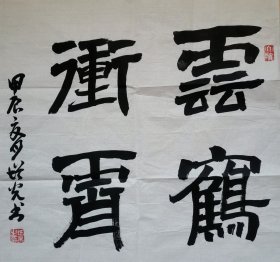 雲鶴
衝霄
甲辰夏月